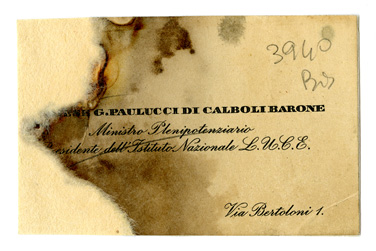 3940
Bis
G. PAULUCCI DI CALBOLI BARONE
Ministro Plenipotenziario
esidente dell'Istituto Nazionale L.U.C.E.
Via Bertoloni 1.